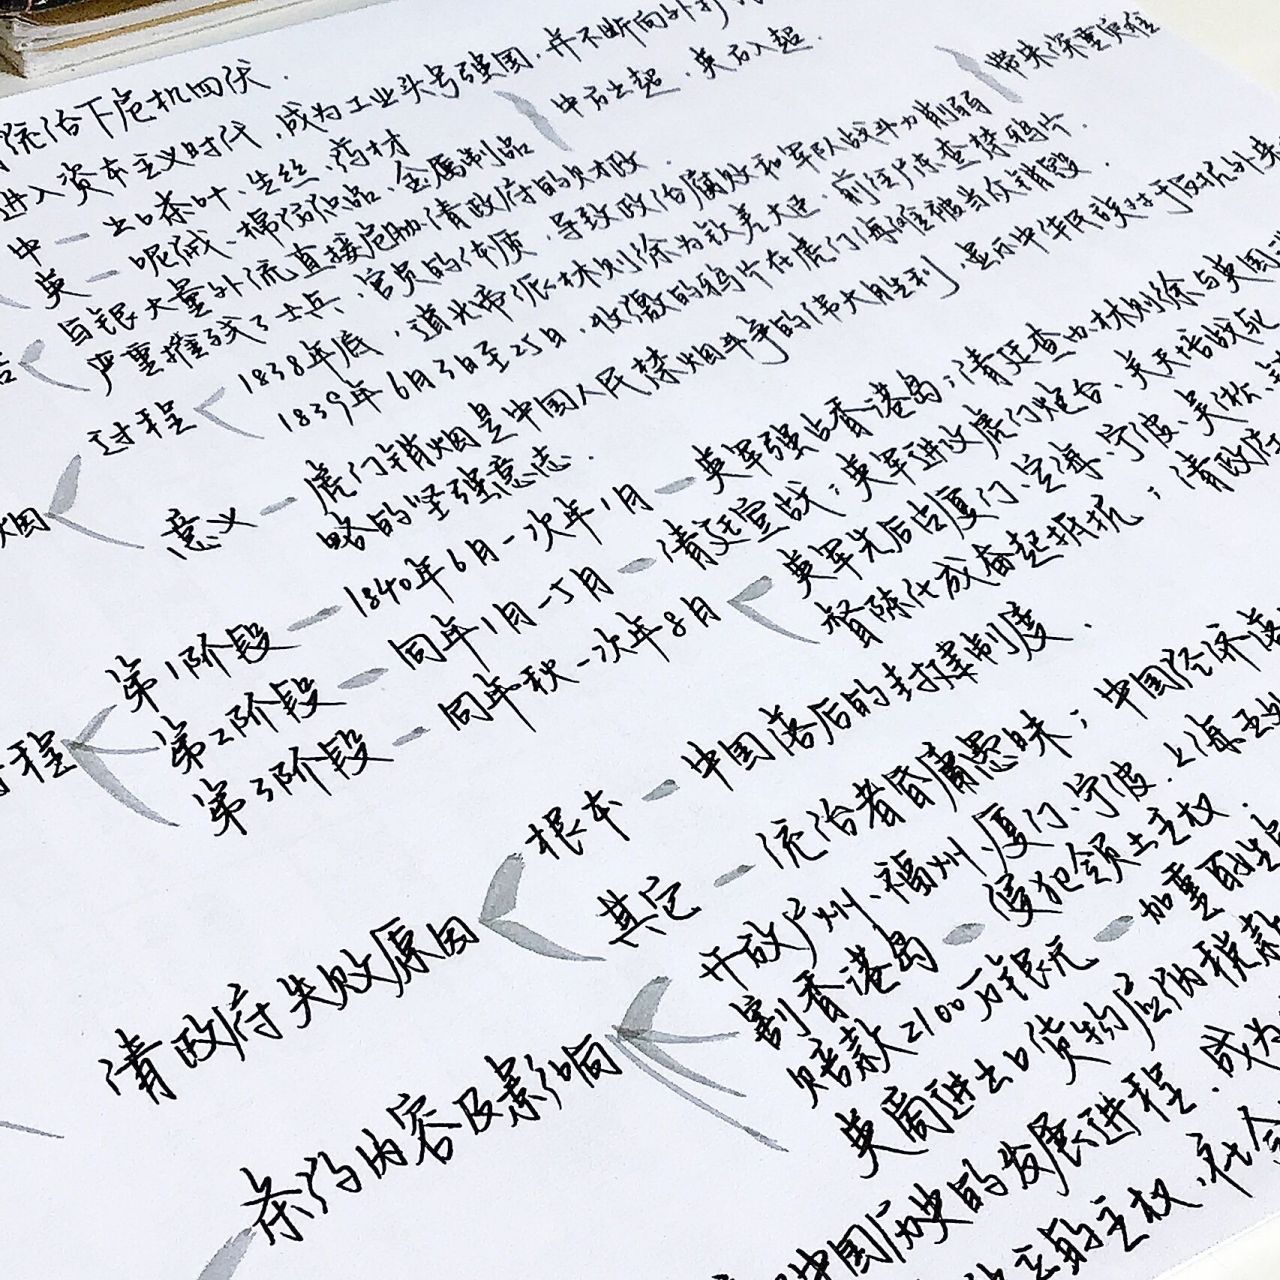 统治下危机四伏.
进入资本主义时代,成为工业头号强国,并不断向外扩
中 — 出口茶叶、生丝、药材
英 — 呢绒、棉纺织品、金属制品
中方出超,英方入超.
与银大量外流直接危胁清政府的财政.
严重摧残了士兵、官员的体质,导致政治腐败和军队战斗力削弱
带来深重灾难
过程
1838年底,道光帝派林则徐为钦差大臣,前往广东查禁鸦片.
1839年6月3日至25日,收缴的鸦片在虎门海滩被当众销毁.
烟
意义 — 虎门销烟是中国人民禁烟斗争的伟大胜利,显示中华民族对于反抗外来
略的坚强意志.
程
第1阶段 — 1840年6月-次年1月 — 英军强占香港岛;清廷查办林则徐与英国
第2阶段 — 同年1月-5月 — 清廷宣战;英军进攻虎门炮台、关天培战死
第3阶段 — 同年秋-次年8月
英军先后占厦门、定海、宁波、吴淞、
督陈化成奋起抵抗;清政府
清政府失败原因
根本 — 中国落后的封建制度.
其它 — 统治者昏庸愚昧;中国经济落
条约内容及影响
开放广州、福州、厦门、宁波、上海五
割香港岛 — 侵犯领土主权.
赔款2100万银元 — 加重百姓
英商进出口货物应纳税款
中国历史的发展进程,成为
的主权、社会